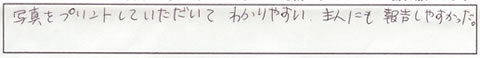 写真をプリントしていただいて わかりやすい、主人にも 報告しやすかった。